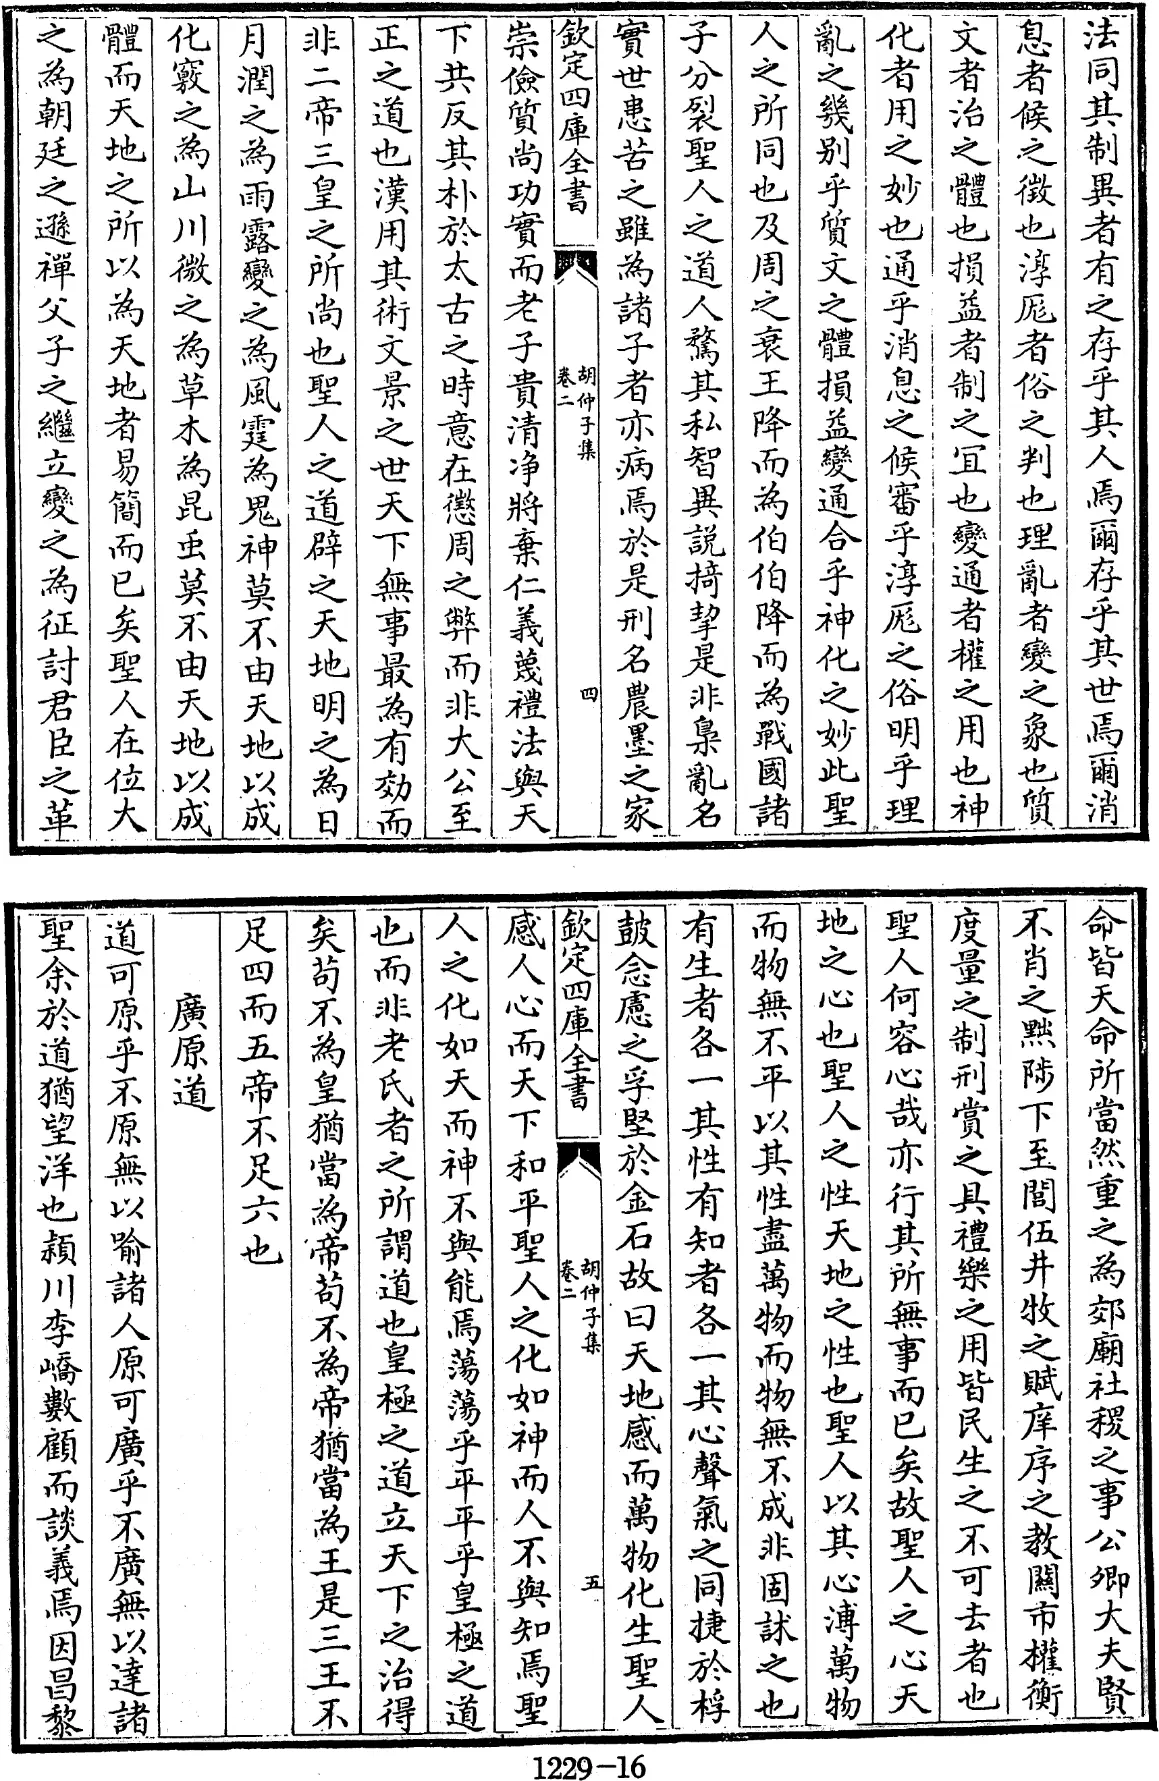 法同其制異者有之存乎其人焉爾存乎其世焉爾消
息者候之徴也淳厖者俗之判也理亂者變之象也質
文者治之體也損益者制之宜也變通者權之用也神
化者用之妙也通乎消息之候審乎淳厖之俗明乎理
亂之幾别乎質文之體損益變通合乎神化之妙此聖
人之所同也及周之衰王降而為伯伯降而為戰國諸
子分裂聖人之道人騖其私智異説掎挈是非梟亂名
實世患苦之雖為諸子者亦病焉於是刑名農墨之家
欽定四庫全書
胡仲子集
卷二
四
崇儉質尚功實而老子貴清净將棄仁義蔑禮法與天
下共反其朴於太古之時意在懲周之弊而非大公至
正之道也漢用其術文景之世天下無事最為有効而
非二帝三皇之所尚也聖人之道辟之天地明之為日
月潤之為雨露變之為風霆為鬼神莫不由天地以成
化竅之為山川微之為草木為昆虫莫不由天地以成
體而天地之所以為天地者易簡而已矣聖人在位大
之為朝廷之遜禪父子之繼立變之為征討君臣之革
命皆天命所當然重之為郊廟社稷之事公卿大夫賢
不肖之黜陟下至閭伍井牧之賦庠序之教關市權衡
度量之制刑賞之具禮樂之用皆民生之不可去者也
聖人何容心哉亦行其所無事而已矣故聖人之心天
地之心也聖人之性天地之性也聖人以其心溥萬物
而物無不平以其性盡萬物而物無不成非固詸之也
有生者各一其性有知者各一其心聲氣之同捷於桴
鼓念慮之孚堅於金石故曰天地感而萬物化生聖人
欽定四庫全書
胡仲子集
卷二
五
感人心而天下和平聖人之化如神而人不與知焉聖
人之化如天而神不與能焉蕩蕩乎平平乎皇極之道
也而非老氏者之所謂道也皇極之道立天下之治得
矣苟不為皇猶當為帝苟不為帝猶當為王是三王不
足四而五帝不足六也
廣原道
道可原乎不原無以喻諸人原可廣乎不廣無以達諸
聖余於道猶望洋也潁川李嶠數顧而談義焉因昌黎
1229-16